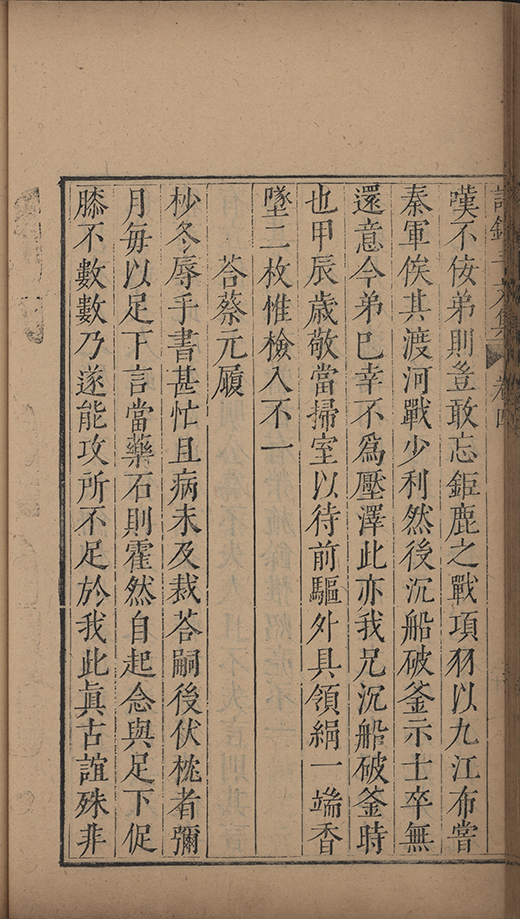 嘆不佞弟則豈敢忘鉅鹿之戰項羽以九江布嘗
秦軍俟其渡河戰少利然後沉船破釜示士卒無
還意今弟巳幸不為壓澤此亦我兄沉船破釜時
也甲辰歲敬當掃室以待前驅外具領絹一端香
墜二枚惟檢入不一
荅蔡元履
杪冬辱手書甚忙且病未及裁荅嗣後伏枕者彌
月每以足下言當藥石則霍然自起念與足下促
膝不數數乃遂能攻所不足於我此眞古誼殊非